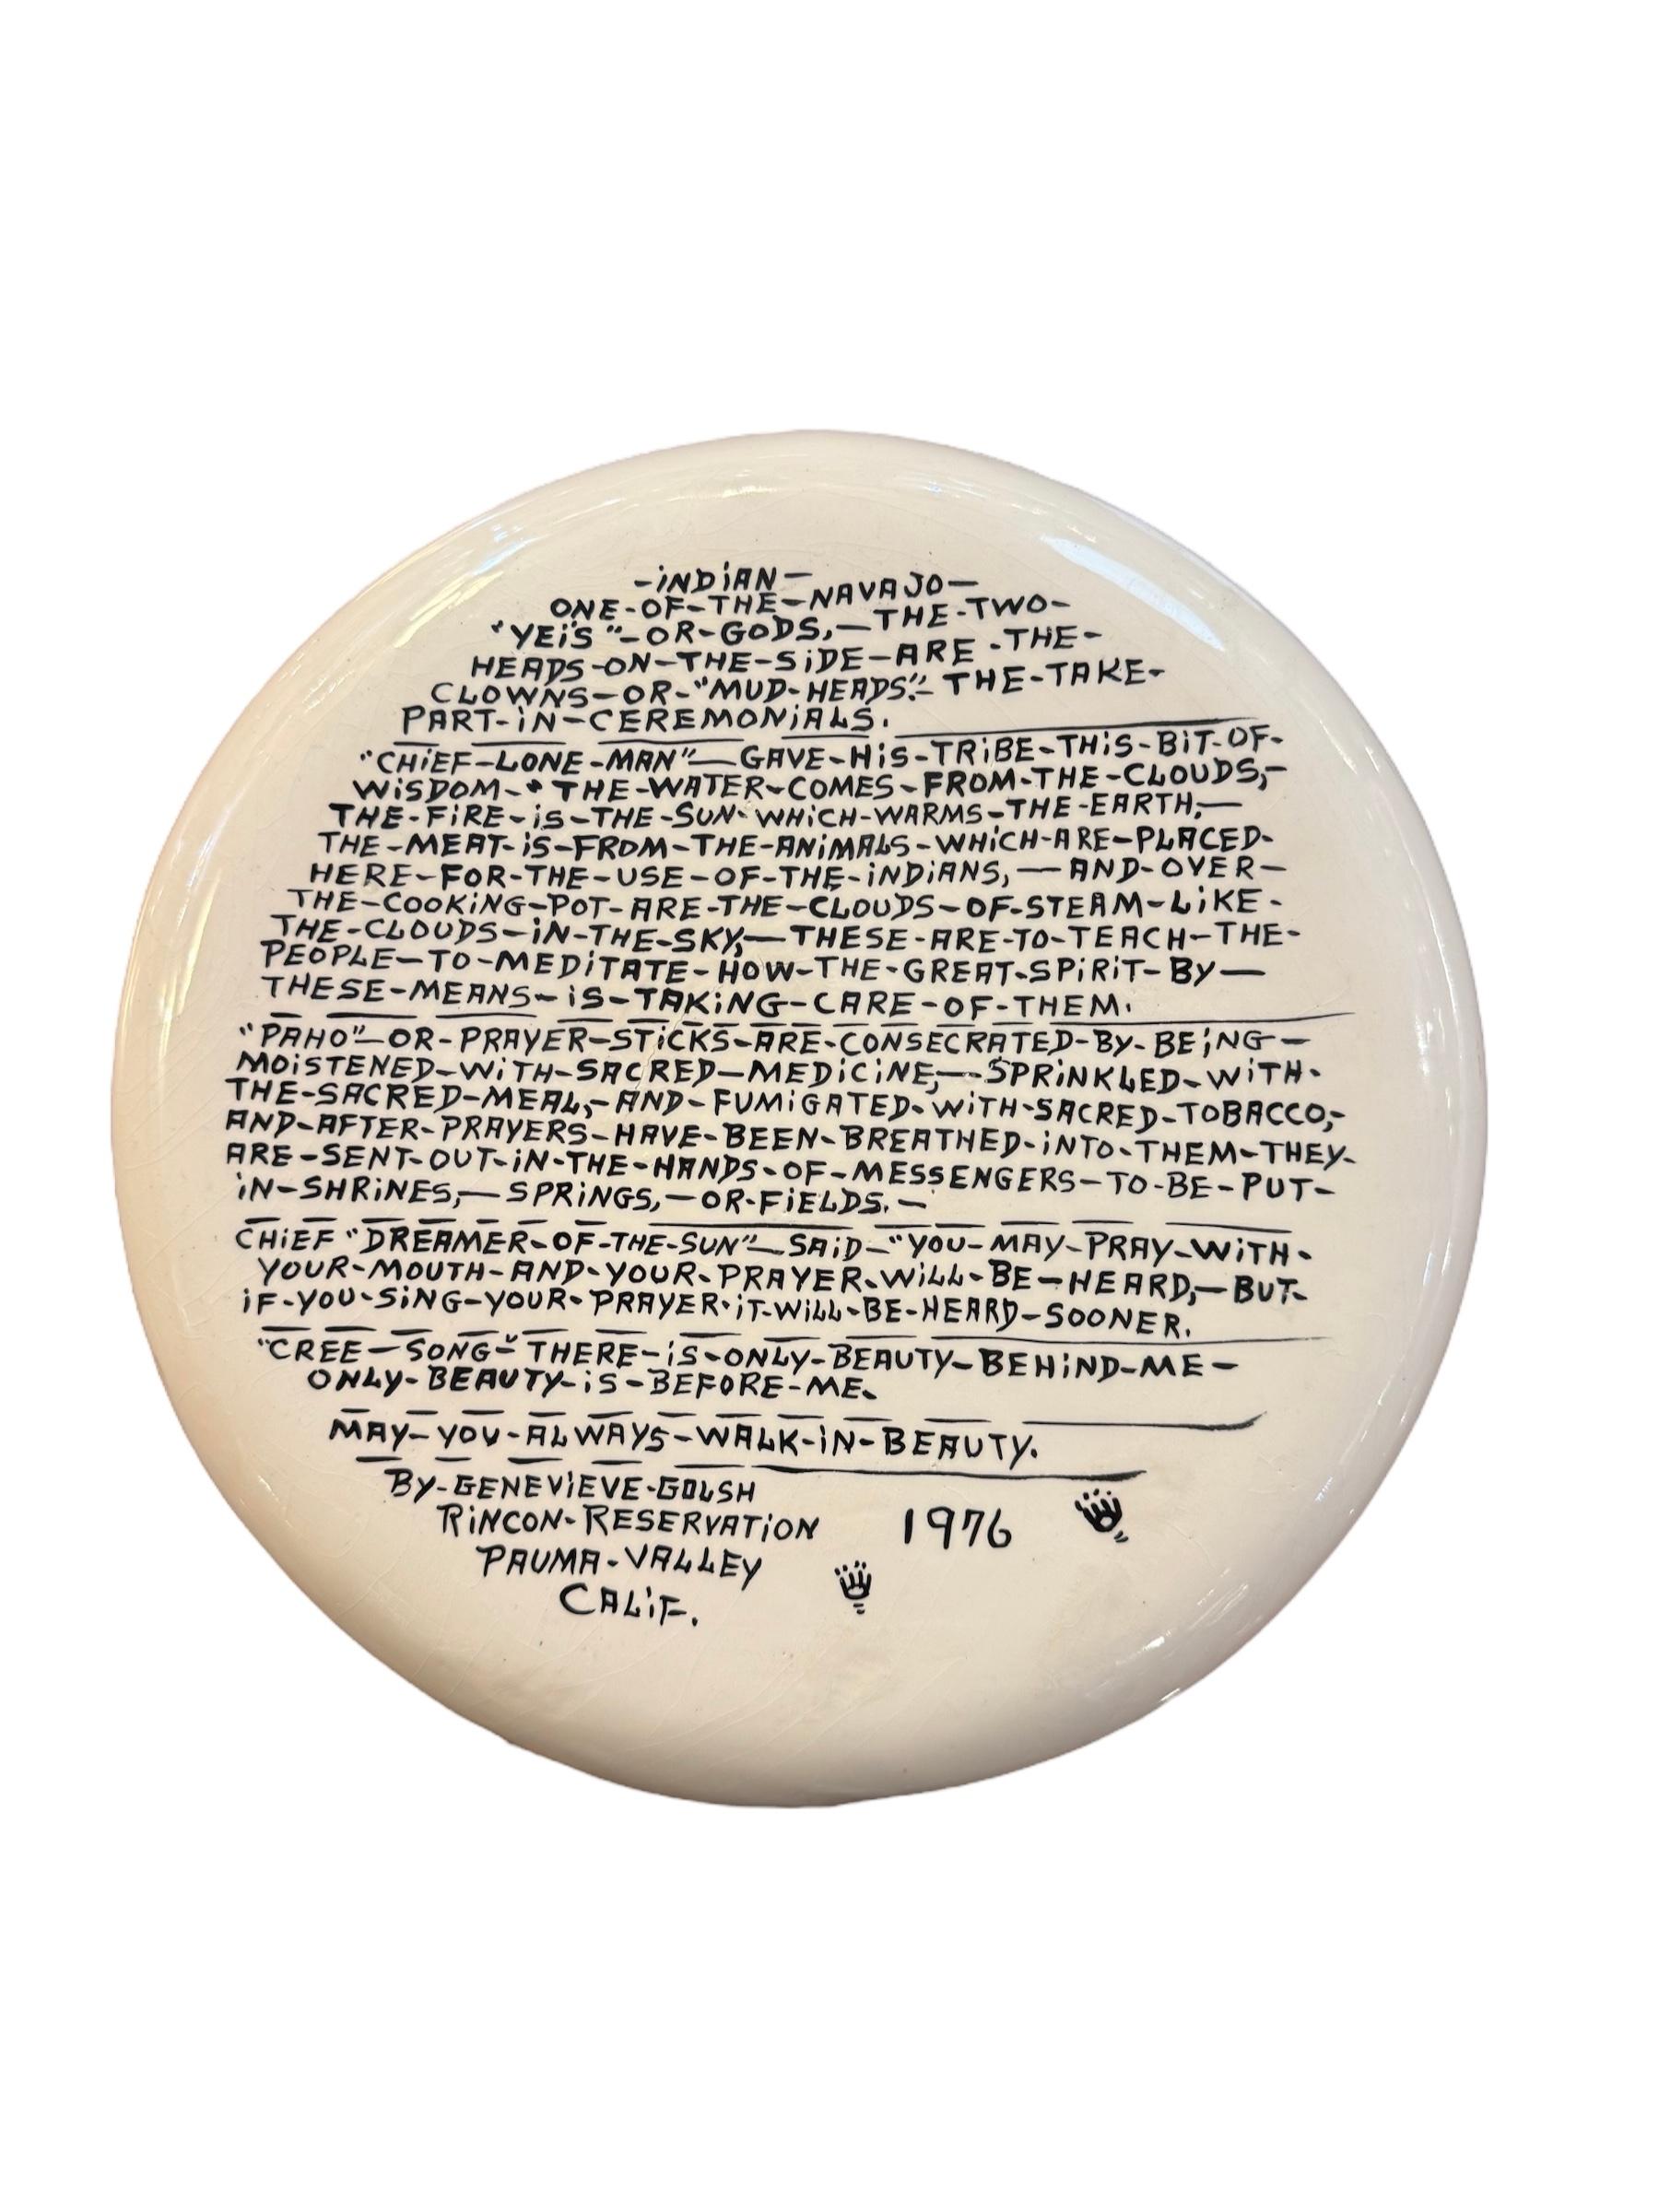 -iNDiAN-
ONE-OF-THE-NAVAJO-
"YEiS"-OR-GODS,-THE-TWO-
HEADS-ON-THE-SiDE-ARE-THE-
CLOWNS-OR-"MUD-HEADS."-THE-TAKE-
PART-iN-CEREMONiALS.
"CHiEF-LONE-MAN"-GAVE-HiS-TRiBE-THiS-BiT-OF-
WiSDOM-"THE-WATER-COMES-FROM-THE-CLOUDS,-
THE-FiRE-iS-THE-SUN-WHiCH-WARMS-THE-EARTH,-
THE-MEAT-iS-FROM-THE-ANiMALS-WHiCH-ARE-PLACED-
HERE-FOR-THE-USE-OF-THE-iNDiANS,-AND-OVER-
THE-COOKiNG-POT-ARE-THE-CLOUDS-OF-STEAM-LiKE-
THE-CLOUDS-iN-THE-SKY,-THESE-ARE-TO-TEACH-THE-
PEOPLE-TO-MEDiTATE-HOW-THE-GREAT-SPiRiT-BY-
THESE-MEANS-iS-TAKiNG-CARE-OF-THEM.
"PAHO"-OR-PRAYER-STiCKS-ARE-CONSECRATED-BY-BEiNG-
MOiSTENED-WiTH-SACRED-MEDiCiNE,-SPRiNKLED-WiTH-
THE-SACRED-MEAL,-AND-FUMiGATED-WiTH-SACRED-TOBACCO,-
AND-AFTER-PRAYERS-HAVE-BEEN-BREATHED-iNTO-THEM-THEY-
ARE-SENT-OUT-iN-THE-HANDS-OF-MESSENGERS-TO-BE-PUT-
iN-SHRiNES,-SPRiNGS,-OR-FiELDS.-
CHiEF "DREAMER-OF-THE-SUN"-SAiD-"YOU-MAY-PRAY-WiTH-
YOUR-MOUTH-AND-YOUR-PRAYER-WiLL-BE-HEARD,-BUT-
iF-YOU-SiNG-YOUR-PRAYER-iT-WiLL-BE-HEARD-SOONER.
"CREE-SONG"-THERE-iS-ONLY-BEAUTY-BEHiND-ME-
ONLY-BEAUTY-iS-BEFORE-ME.
MAY-YOU-ALWAYS-WALK-iN-BEAUTY.
BY-GENEViEVE-GOLSH
RiNCON-RESERVATiON 1976
PAUMA-VALLEY
CALiF.